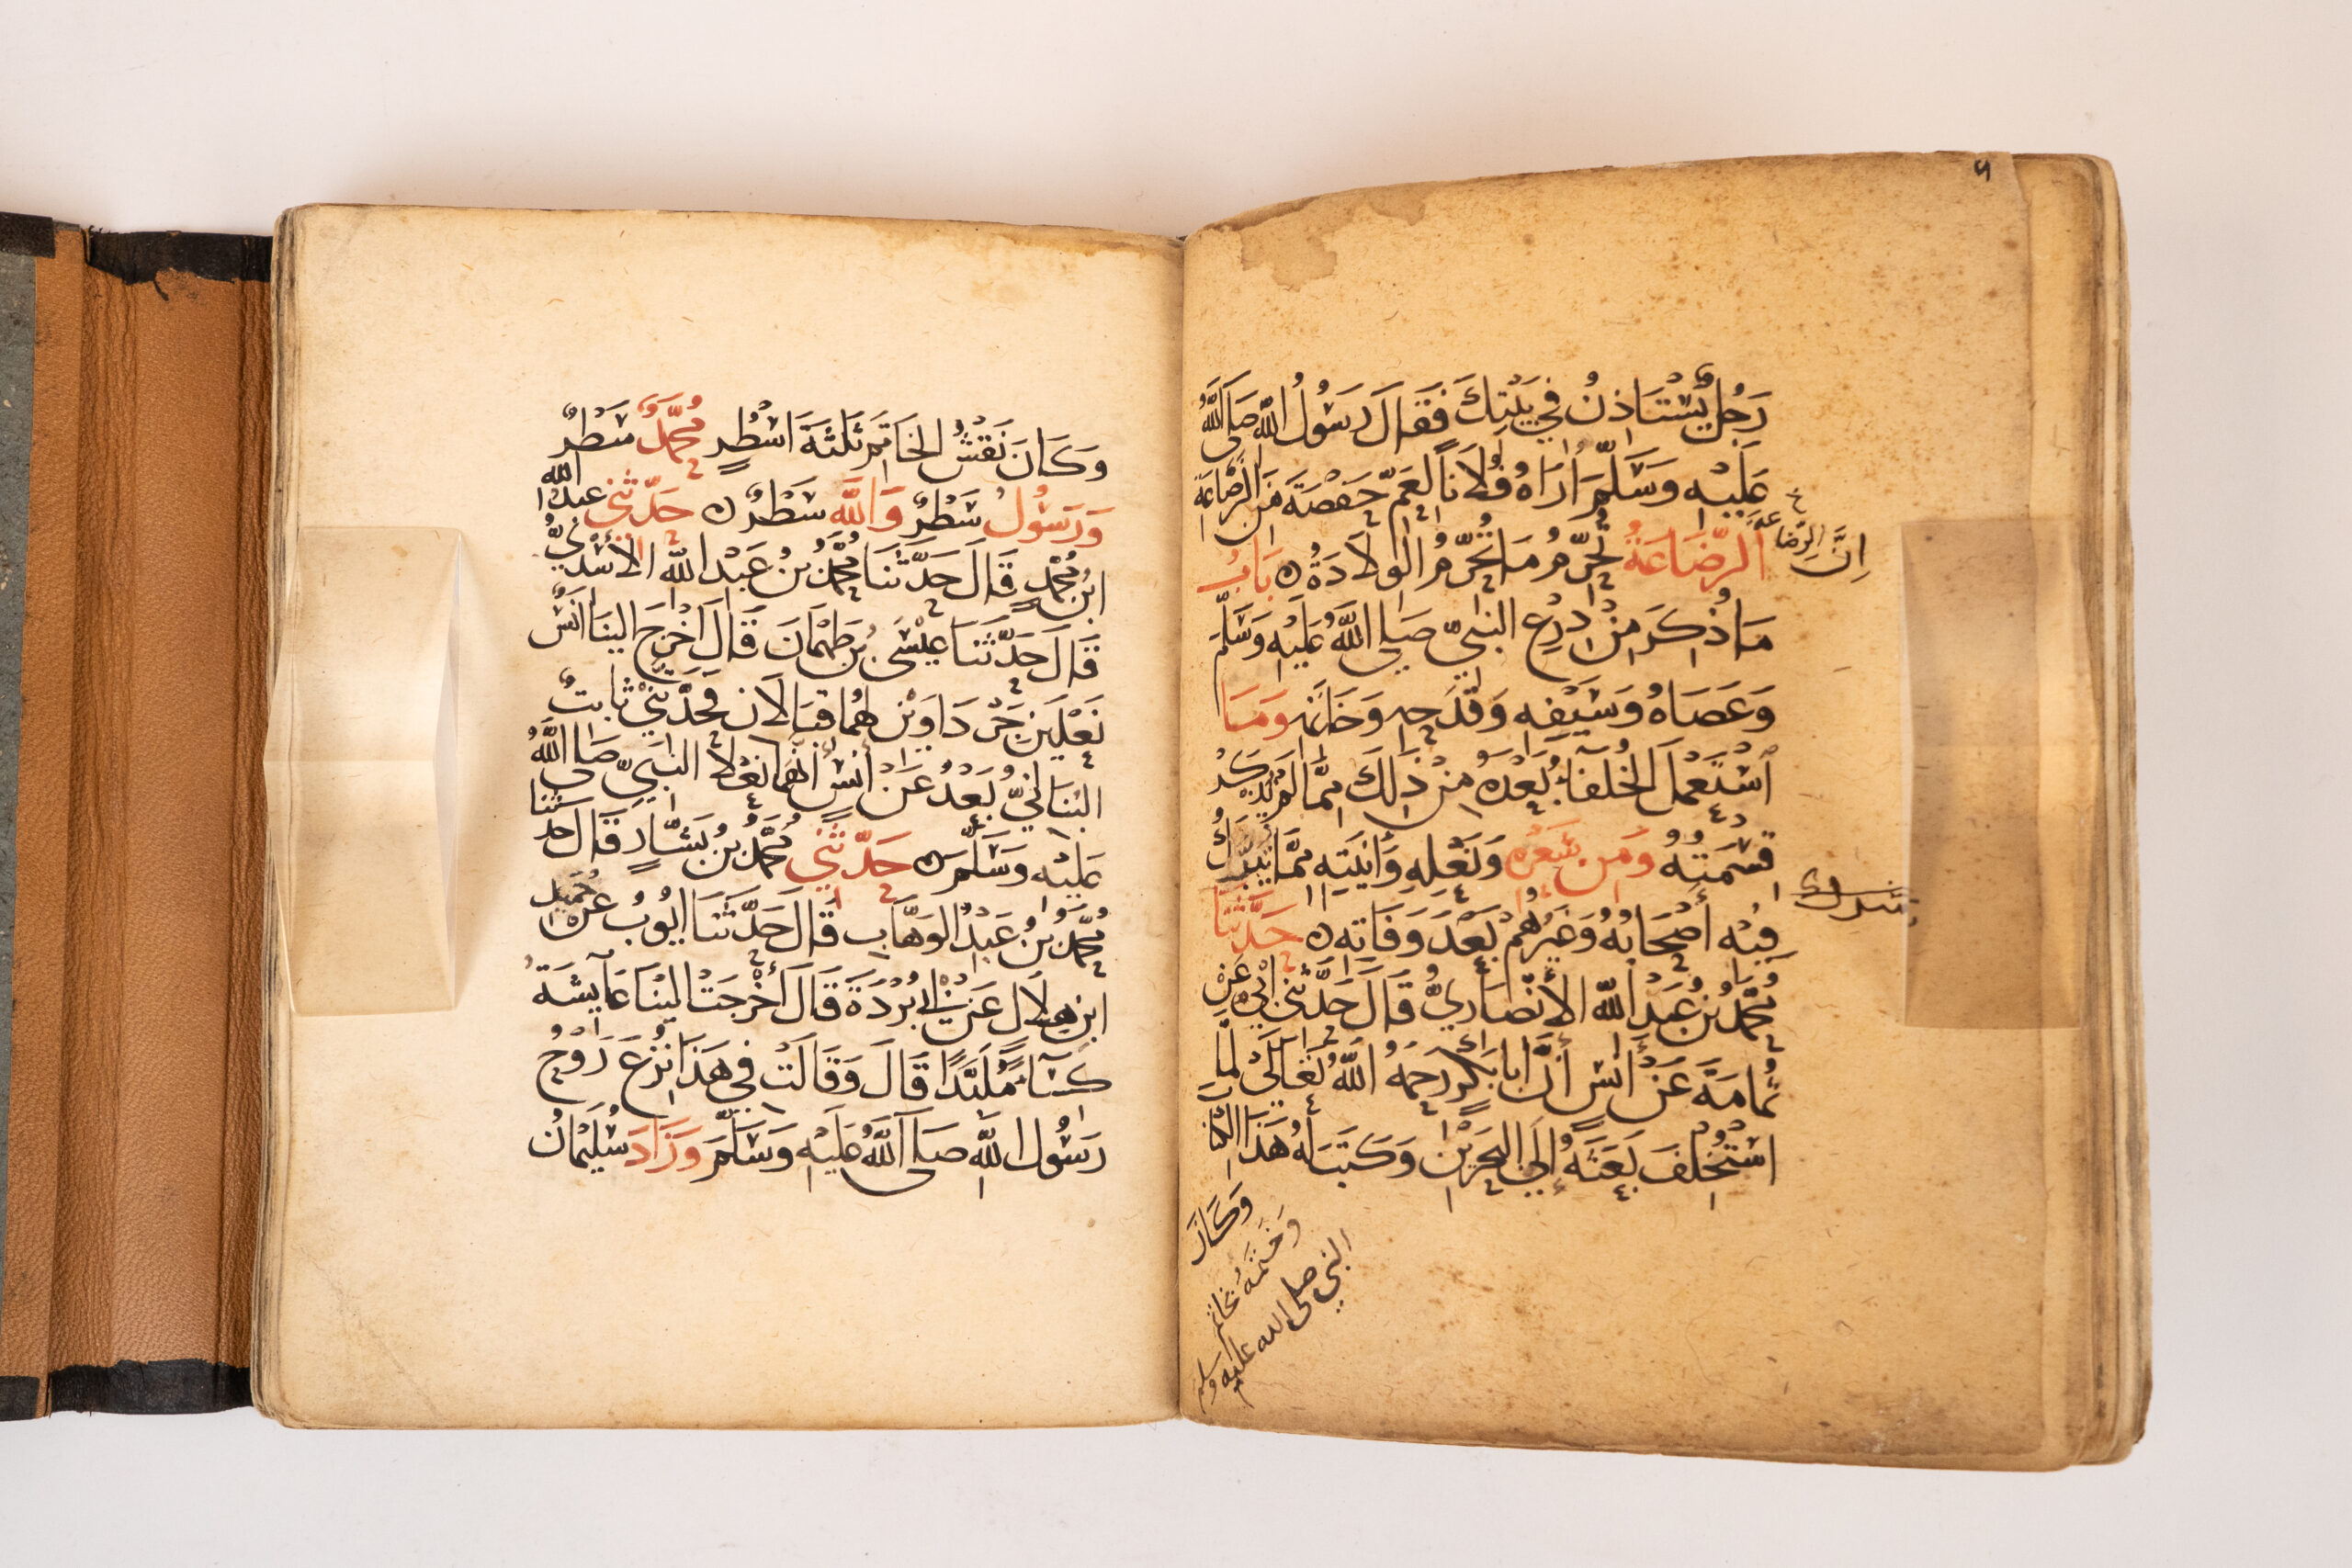 ٩
رَجُلٌ يَسْتَاذِنُ فِي بَيْتِكَ فَقَالَ رَسُولُ اللَّهِ صَلَّى اللَّهُ
عَلَيْهِ وَسَلَّمَ أُرَاهُ فُلَانًا لِعَمِّ حَفْصَةَ مِنَ الرَّضَاعَةِ
إِنَّ الرَّضَاعَةَ
الرَّضَاعَةُ تُحَرِّمُ مَا تُحَرِّمُ الْوِلَادَةُ ه بَابُ
مَا ذُكِرَ مِنْ دِرْعِ النَّبِيِّ صَلَّى اللَّهُ عَلَيْهِ وَسَلَّمَ
وَعَصَاهُ وَسَيْفِهِ وَقَدَحِهِ وَخَاتَمِهِ وَمَا
اسْتَعْمَلَ الْخُلَفَاءُ بَعْدَهُ مِنْ ذَلِكَ مِمَّا لَمْ يُذْكَرْ
قِسْمَتُهُ وَمِنْ شَعَرِهِ وَنَعْلِهِ وَآنِيَتِهِ مِمَّا
فِيهِ أَصْحَابُهُ وَغَيْرُهُمْ بَعْدَ وَفَاتِهِ ه حَدَّثَنَا
مُحَمَّدُ بْنُ عَبْدِ اللَّهِ الْأَنْصَارِيُّ قَالَ حَدَّثَنِي أَبِي عَنْ
ثُمَامَةَ عَنْ أَنَسٍ أَنَّ أَبَا بَكْرٍ رَحِمَهُ اللَّهُ تَعَالَى لَمَّا
اسْتُخْلِفَ بَعَثَهُ إِلَى الْبَحْرَيْنِ وَكَتَبَ لَهُ هَذَا الْكِتَابَ
وَخَتَمَهُ بِخَاتَمِ
النبي صلى الله عليه وسلم
وَكَانَ
وَكَانَ نَقْشُ الْخَاتَمِ ثَلَثَةَ اَسْطُرٍ مُحَمَّدٌ سَطْرٌ
وَرَسُولُ سَطْرٌ وَاللَّهِ سَطْرٌ ه حَدَّثَنِي عبد الله
ابْنُ مُحَمَّدٍ قَالَ حَدَّثَنَا مُحَمَّدُ بْنُ عَبْدِ اللَّهِ الْأَسَدِيُّ
قَالَ حَدَّثَنَا عِيسَى بْنُ طَهْمَانَ قَالَ أَخْرَجَ إِلَيْنَا أَنَسٌ
نَعْلَيْنِ جَرْدَاوَيْنِ لَهُمَا قِبَالَانِ فَحَدَّثَنِي ثَابِتٌ
الْبُنَانِيُّ بَعْدُ عَنْ أَنَسٍ أَنَّهُمَا نَعْلَا النَّبِيِّ صَلَّى اللَّهُ
عَلَيْهِ وَسَلَّمَ ه حَدَّثَنِي مُحَمَّدُ بْنُ بَشَّارٍ قَالَ حَدَّثَنَا
مُحَمَّدُ بْنُ عَبْدِ الْوَهَّابِ قَالَ حَدَّثَنَا أَيُّوبُ عَنْ حُمَيْدِ
ابْنِ هِلَالٍ عَنْ أَبِي بُرْدَةَ قَالَ أَخْرَجَتْ إِلَيْنَا عَايِشَةُ
كِسَآءً مُلَبَّدًا قَالَ وَقَالَتْ فِي هَذَا نُزِعَ رُوحُ
رَسُولِ اللَّهِ صَلَّى اللَّهُ عَلَيْهِ وَسَلَّمَ وَزَادَ سُلَيْمَانُ